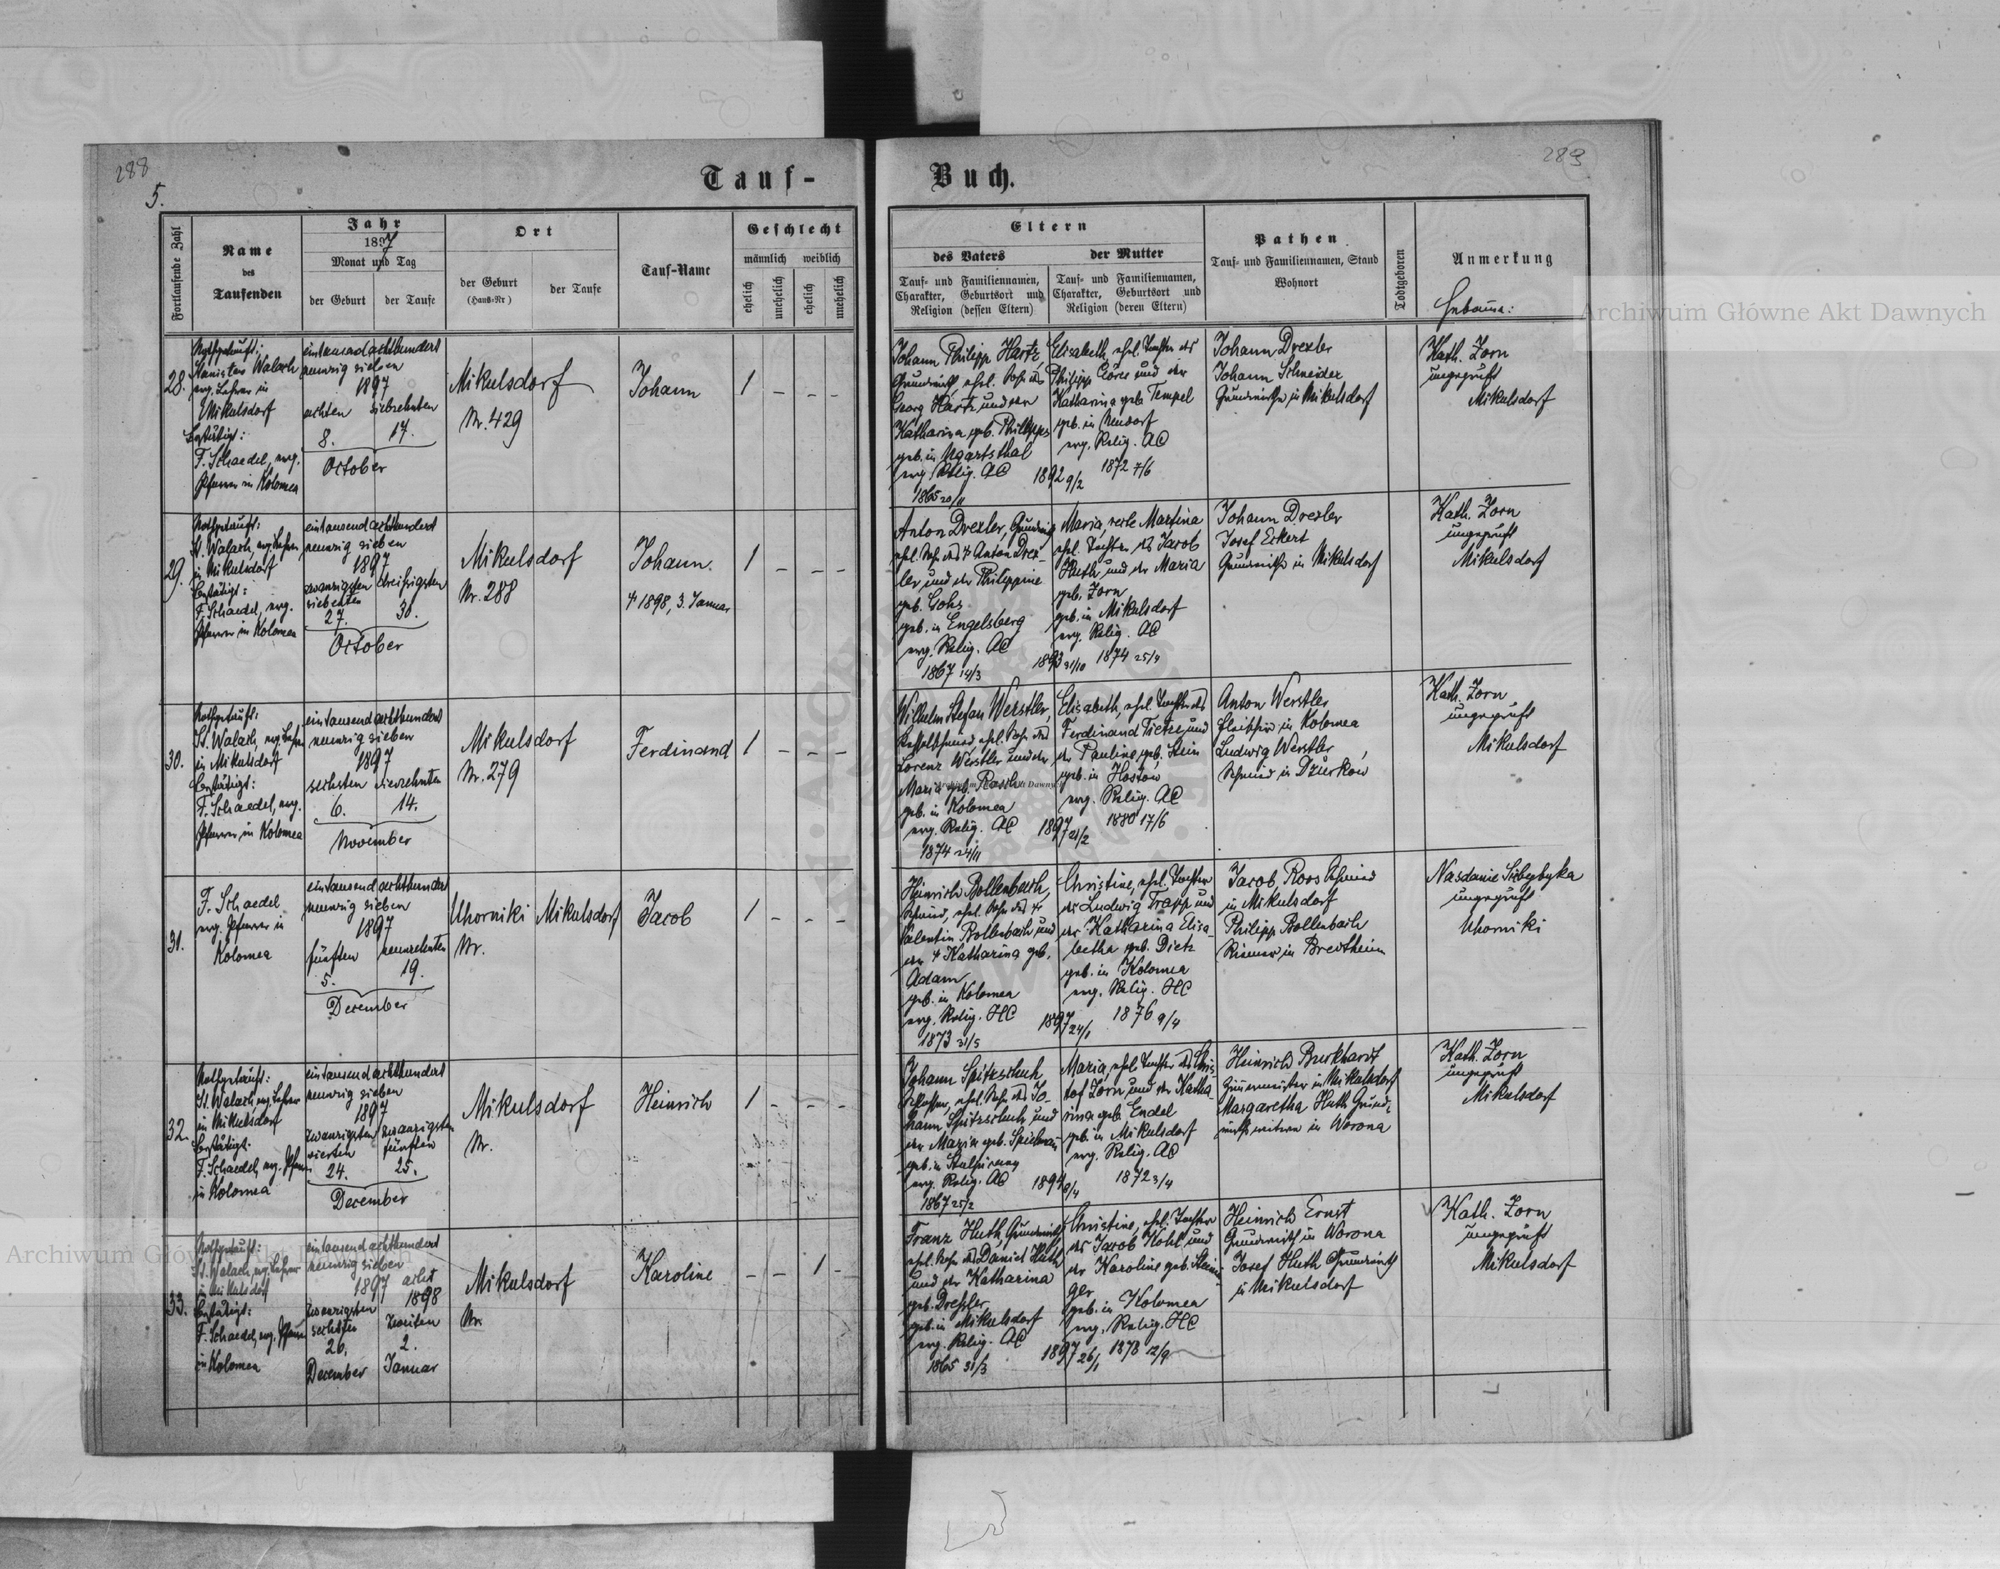 288
5.
Tauf-
Fortlaufende Zahl
Name
des
Taufenden
Jahr
1897
Monat und Tag
der Geburt
der Taufe
Ort
der Geburt
(Haus-Nr)
der Taufe
Tauf-Name
Geschlecht
männlich weiblich
ehelich
unehelich
ehelich
unehelich
28.
Nothgetauft:
Stanislav Walach
evg. Lehrer in
Mikulsdorf
Bestätigt:
F. Schaedel, evg.
Pfarrer in Kolomea
eintausend achthundert
neunzig sieben
1897
achten siebzehnten
8. 17.
October
Mikulsdorf
Nr. 429
Johann
1 - - -
29.
Nothgetauft:
St. Walach, evg. Lehrer
in Mikulsdorf
Bestätigt:
F. Schaedel, evg.
Pfarrer in Kolomea
eintausend achthundert
neunzig sieben
1897
zwanzigsten dreißigsten
siebenten
27. 30.
October
Mikulsdorf
Nr. 288
Johann.
† 1898, 3. Januar
1 - - -
30.
Nothgetauft:
St. Walach, evg. Lehrer
in Mikulsdorf
Bestätigt:
F. Schaedel, evg.
Pfarrer in Kolomea
eintausend achthundert
neunzig sieben
1897
sechsten vierzehnten
6. 14.
November
Mikulsdorf
Nr. 279
Ferdinand
1 - - -
31.
F. Schaedel
evg. Pfarrer in
Kolomea
eintausend achthundert
neunzig sieben
1897
fünften neunzehnten
5. 19.
December
Uhorniki Mikulsdorf
Nr.
Jacob
1 - - -
32.
Nothgetauft:
St. Walach, evg. Lehrer
in Mikulsdorf
Bestätigt:
F. Schaedel, evg. Pfarrer
in Kolomea
eintausend achthundert
neunzig sieben
1897
zwanzigsten zwanzigsten
vierten fünften
24. 25.
December
Mikulsdorf
Nr.
Heinrich
1 - - -
33.
Nothgetauft:
St. Walach, evg. Lehrer
in Mikulsdorf
Bestätigt:
F. Schaedel, evg. Pfarrer
in Kolomea
eintausend achthundert
neunzig sieben
1897 acht
1898
zwanzigsten
sechsten zweiten
26. 2.
December Januar
Mikulsdorf
Nr.
Karoline
- - 1 -
289
Buch.
Eltern
des Vaters
Tauf- und Familiennamen,
Charakter, Geburtsort und
Religion (dessen Eltern)
der Mutter
Tauf- und Familiennamen,
Charakter, Geburtsort und
Religion (deren Eltern)
Pathen
Tauf- und Familiennamen, Stand
Wohnort
Todtgeboren
Anmerkung
Hebamme:
Johann Philipp Hartz,
Grundwirth, ehel. Sohn des
Georg Hartz und der
Katharina geb. Philipps
geb. in Ugartsthal
evg. Relig. AC
1865 20/11
1892 9/2
Elisabeth, ehel. Tochter des
Philipp Cörer und der
Katharina geb. Tempel
geb. in Neudorf
evg. Relig. AC
1872 7/6
Johann Drexler
Johann Schneider
Grundwirthe in Mikulsdorf
Kath. Zorn
ungeprüft
Mikulsdorf
Anton Drexler, Grundwirth
ehel. Sohn des † Anton Drex-
ler und der Philippine
geb. Gohs
geb. in Engelsberg
evg. Relig. AC
1867 14/3
1893 31/10
Maria, recte Martina
ehel. Tochter des Jacob
Huth und der Maria
geb. Zorn
geb. in Mikulsdorf
evg. Relig. AC
1874 25/9
Johann Drexler
Josef Eckert
Grundwirthe in Mikulsdorf
Kath. Zorn
ungeprüft
Mikulsdorf
Wilhelm Stefan Werstler,
Kesselschmied, ehel. Sohn des
Lorenz Werstler und der
Maria geb. Rasch
geb. in Kolomea
evg. Relig. AC
1874 24/11
1897 21/2
Elisabeth, ehel. Tochter des
Ferdinand Tietze und
der Pauline, geb. Stein
geb. in Hostów
evg. Relig. AC
1880 17/6
Anton Werstler
Fleischer in Kolomea
Ludwig Werstler
Schmied in Dżurków
Kath. Zorn
ungeprüft
Mikulsdorf
Heinrich Bollenbach,
Schmied, ehel. Sohn des †
Valentin Bollenbach und
der † Katharina geb.
Adam
geb. in Kolomea
evg. Relig. HC
1873 31/5
1897 24/1
Christine, ehel. Tochter
des Ludwig Trapp und
der Katharina Elisa-
betha geb. Dietz
geb. in Kolomea
evg. Relig. HC
1876 9/4
Jacob Roos Schmied
in Mikulsdorf
Philipp Bollenbach
Riemer in Bredtheim
ungeprüft
Uhorniki
Johann Spitzschuh
Schlosser, ehel. Sohn des Jo-
hann Spitzschuh und
der Maria geb.
geb. in
evg. Relig. AC
1867 25/2
1894 8/4
Maria, ehel. Tochter des Chris-
tof Zorn und der Katha-
rina geb. Endel
geb. in Mikulsdorf
evg. Relig. AC
1872 3/4
Heinrich Burkhardt
Zimmermeister in Mikulsdorf
Margaretha Huth Grund-
wirthswitwe in Worona
Kath. Zorn
ungeprüft
Mikulsdorf
Franz Huth, Grundwirth
ehel. Sohn des Daniel Huth
und der Katharina
geb. Drexler
geb. in Mikulsdorf
evg. Relig. AC
1865 31/3
1897 26/1
Christine, ehel. Tochter
des Jacob Kohl und
der Karoline geb. Stenni-
ger
geb. in Kolomea
evg. Relig. HC
1878 12/9
Heinrich Ernst
Grundwirth in Worona
Josef Huth Grundwirth
in Mikulsdorf
Kath. Zorn
ungeprüft
Mikulsdorf
Archiwum Główne Akt Dawnych
Archiwum Główne Akt Dawnych